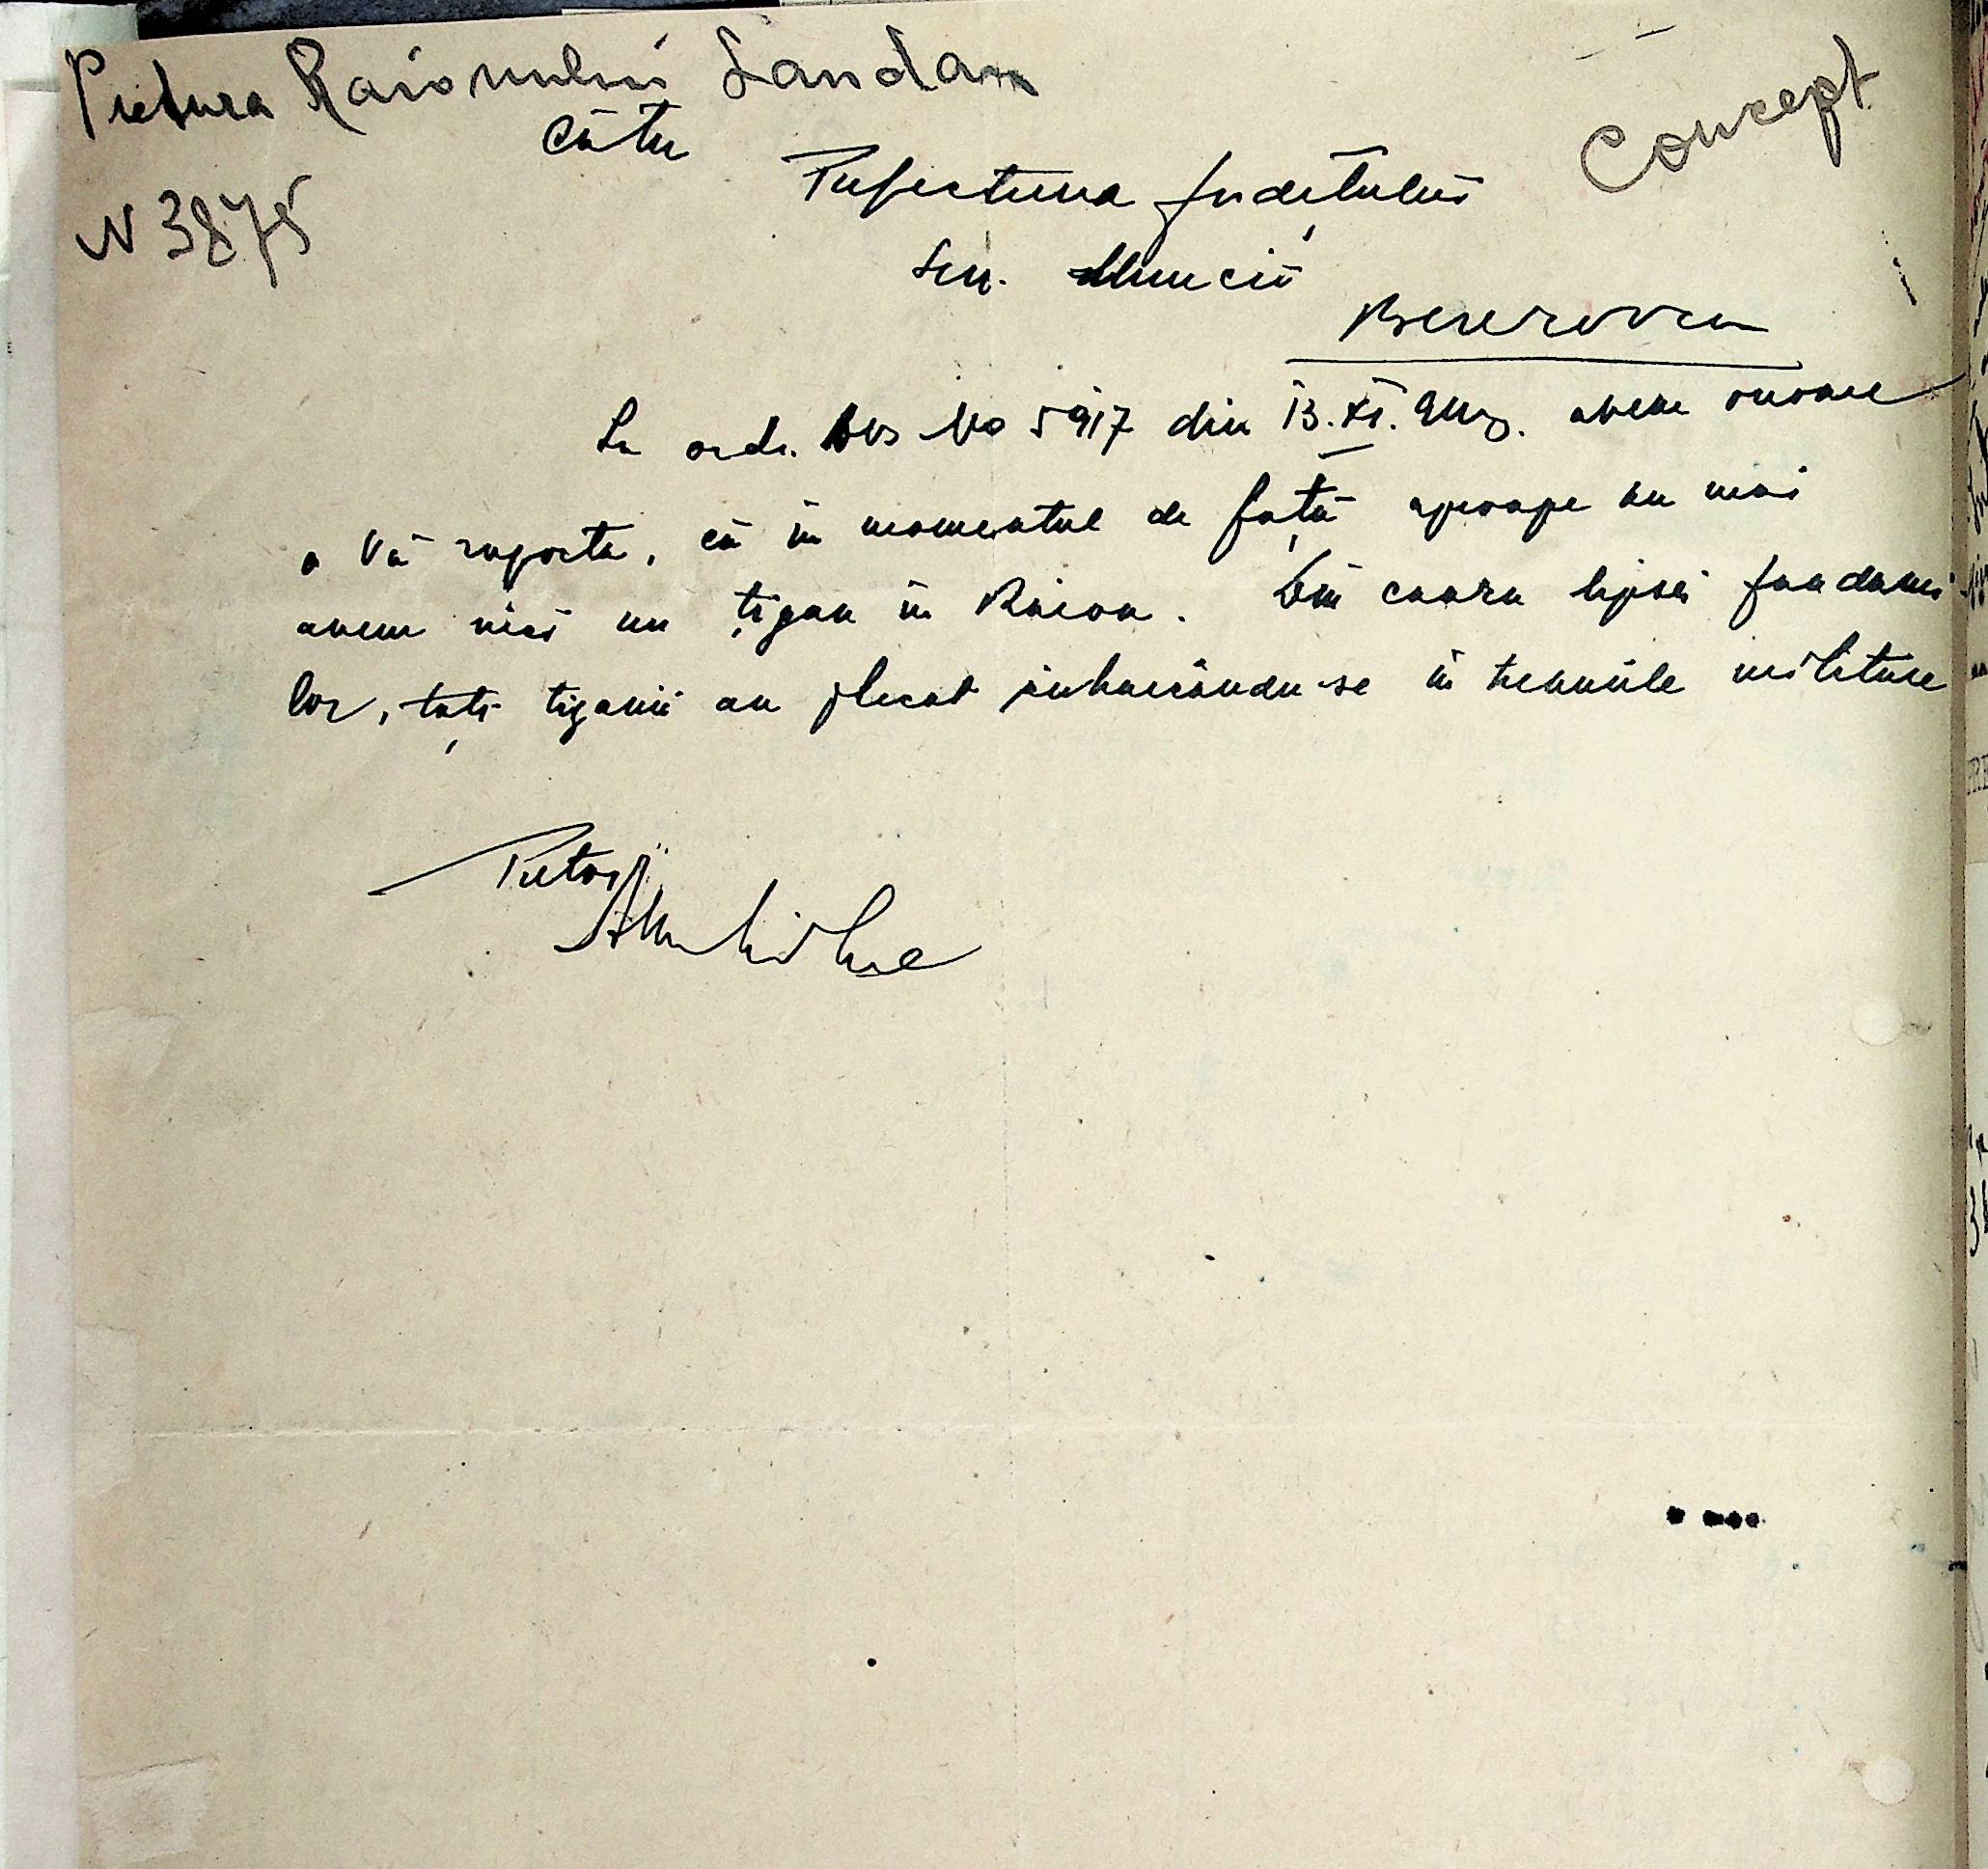 Pretura Raionului Landau
Concept
Către
Prefectura Județului
N 3875
Serv. Muncii
Berezovca
La ord. Dvs No 5917 din 13.XI. avem onoare
a Vă raporta, că în momentul de față aproape nu mai
avem nici un țigan în Raion. Din cauza lipsei jandarmi
lor, toți țiganii au plecat îmbarcându-se în trenurile militare
Pretor,